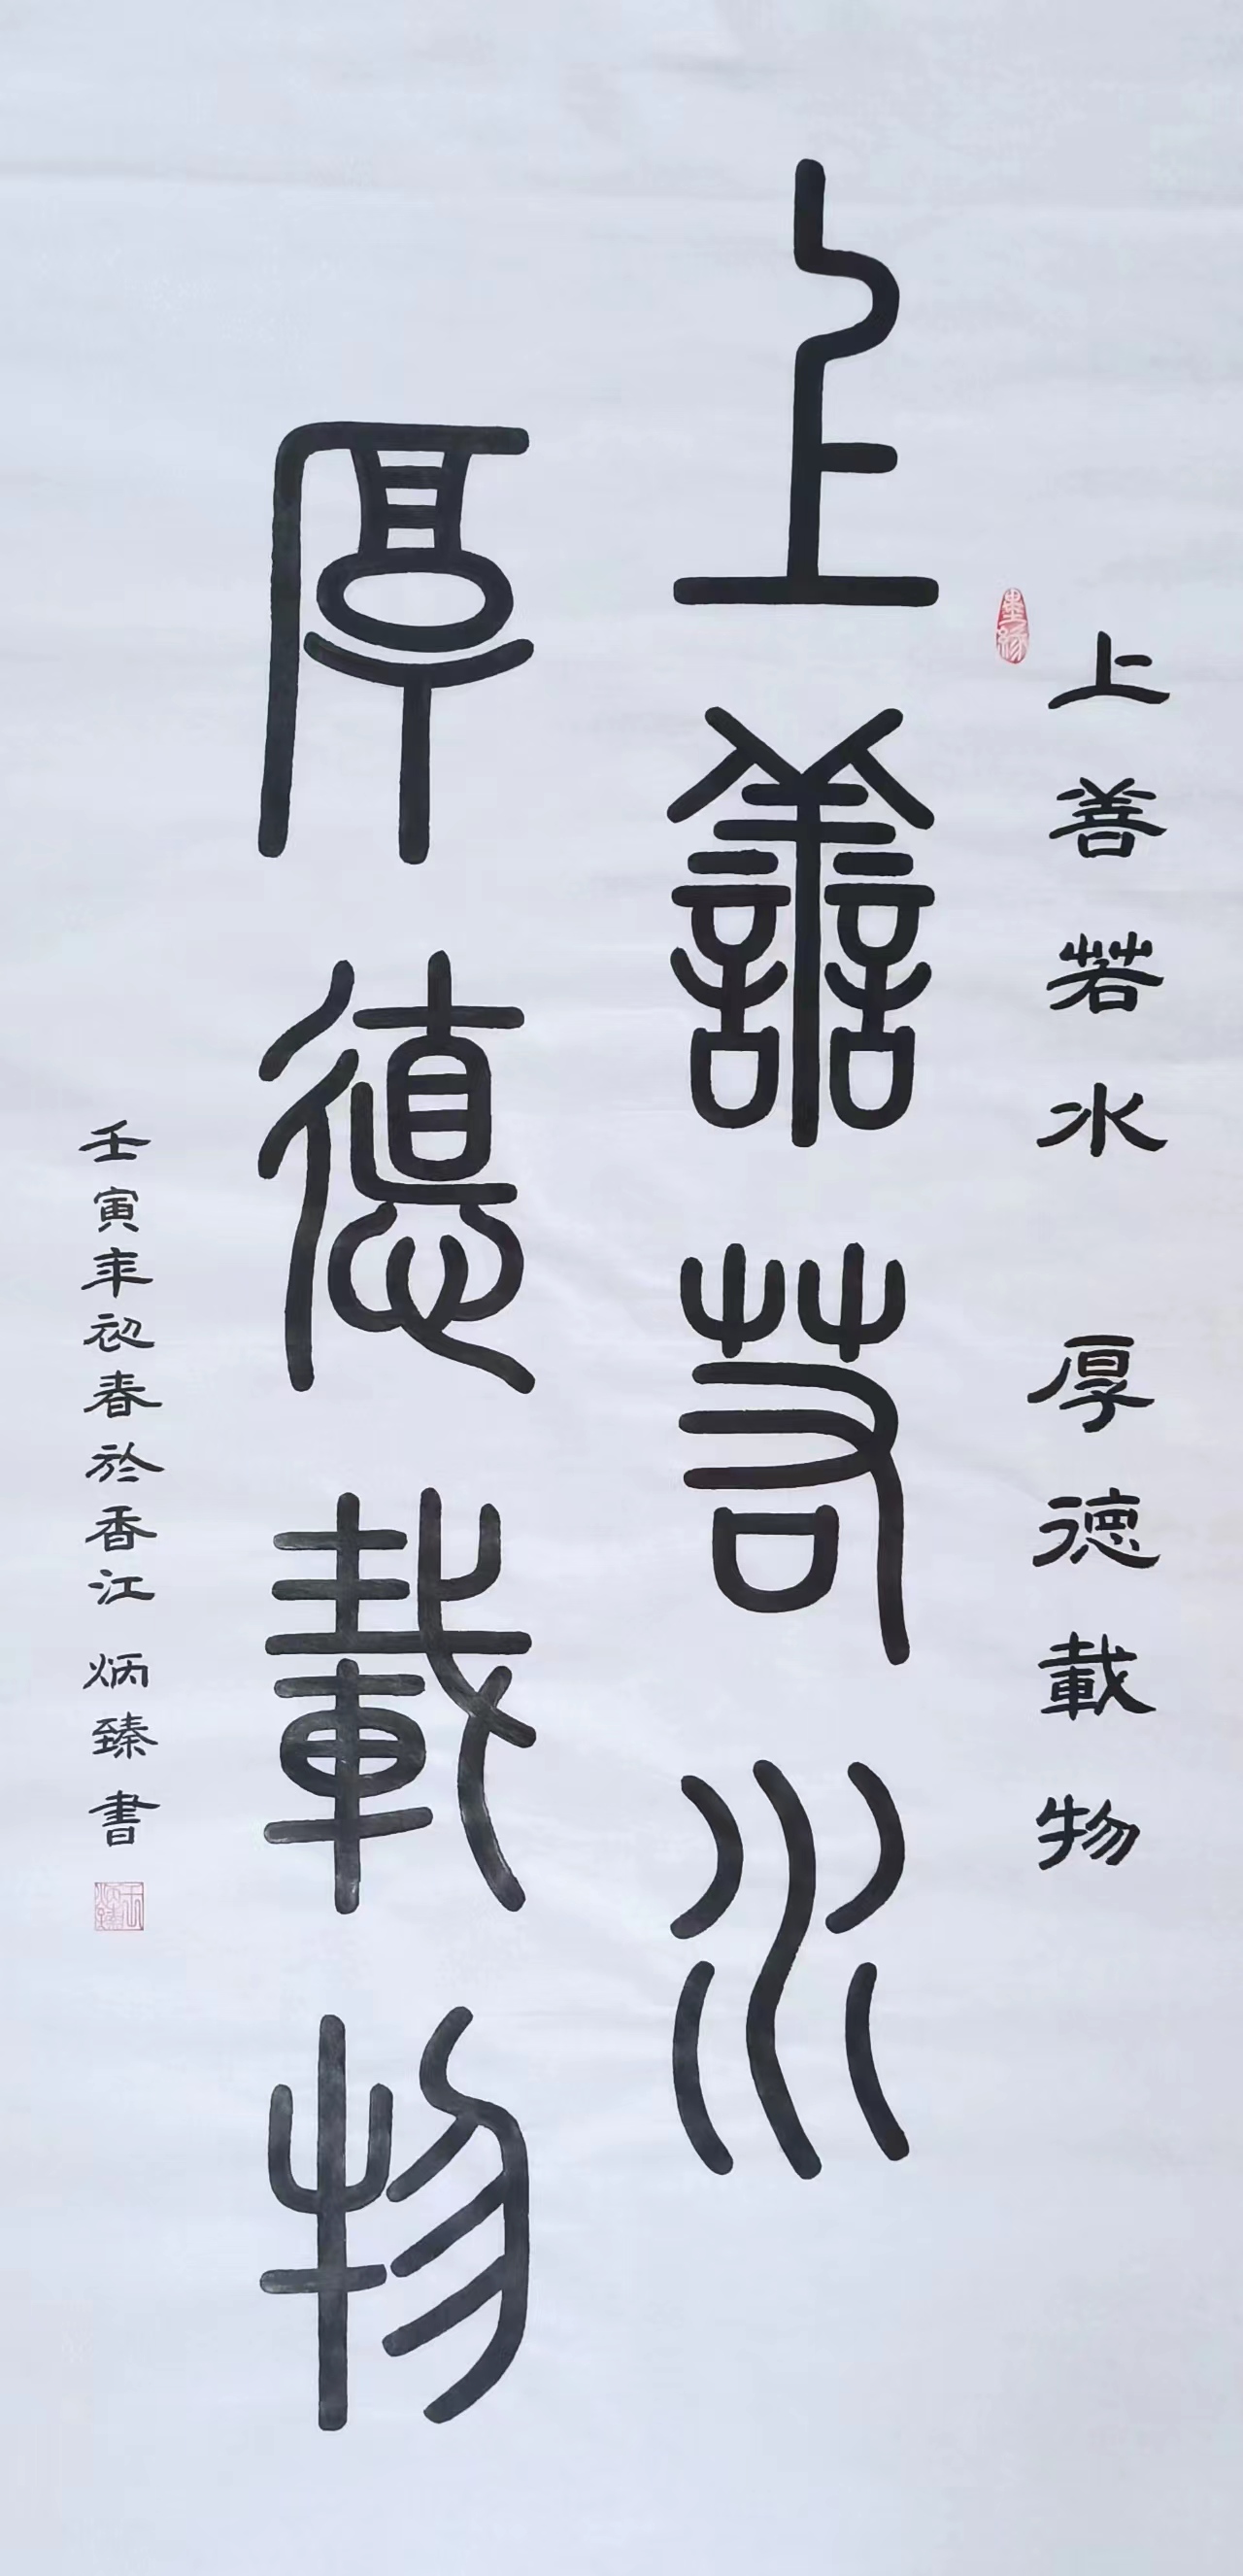 上善若水 厚德載物
墨緣
上善若水
厚德載物
壬寅年初春於香江 炳臻書